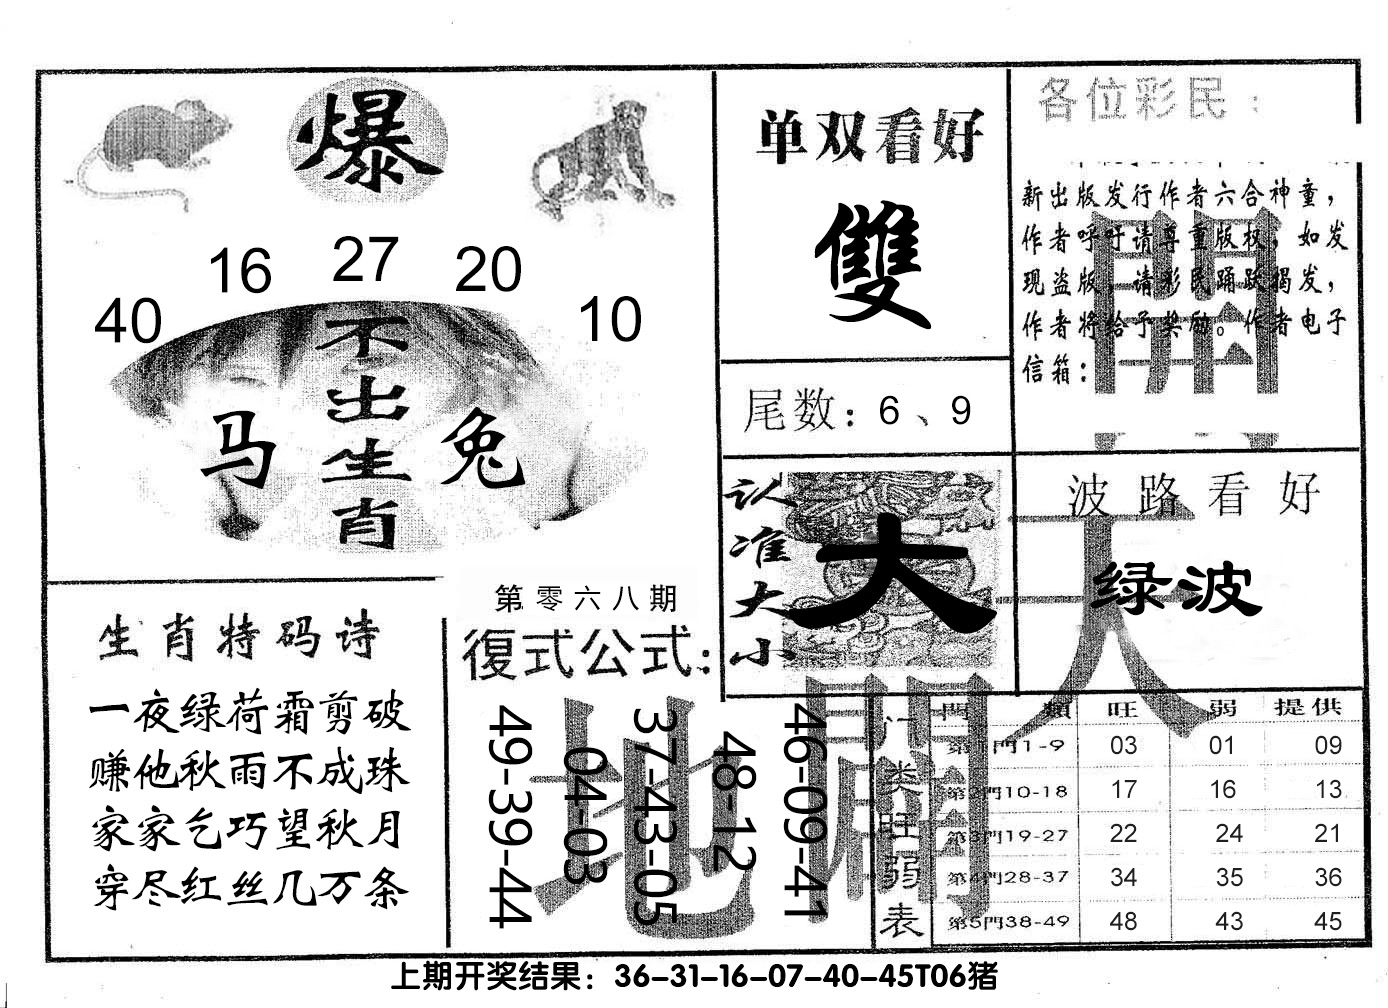 爆
16 27 20
40 10
不出生肖
马 兔
单双看好
雙
尾数：6、9
各位彩民：
新出版发行作者六合神童，
作者呼吁请尊重版权，如发
现盗版，请彩民踊跃揭发，
作者将给予奖励。作者电子
信箱：
開
认准大小
大
波路看好
绿波
天
生肖特码诗
一夜绿荷霜剪破
赚他秋雨不成珠
家家乞巧望秋月
穿尽红丝几万条
第零六八期
復式公式：
49-39-44
04-03
37-43-05
48-12
46-09-41
地
门类旺弱表
門類 旺 弱 提供
第1門1-9 03 01 09
第2門10-18 17 16 13
第3門19-27 22 24 21
第4門28-37 34 35 36
第5門38-49 48 43 45
上期开奖结果：36-31-16-07-40-45T06猪